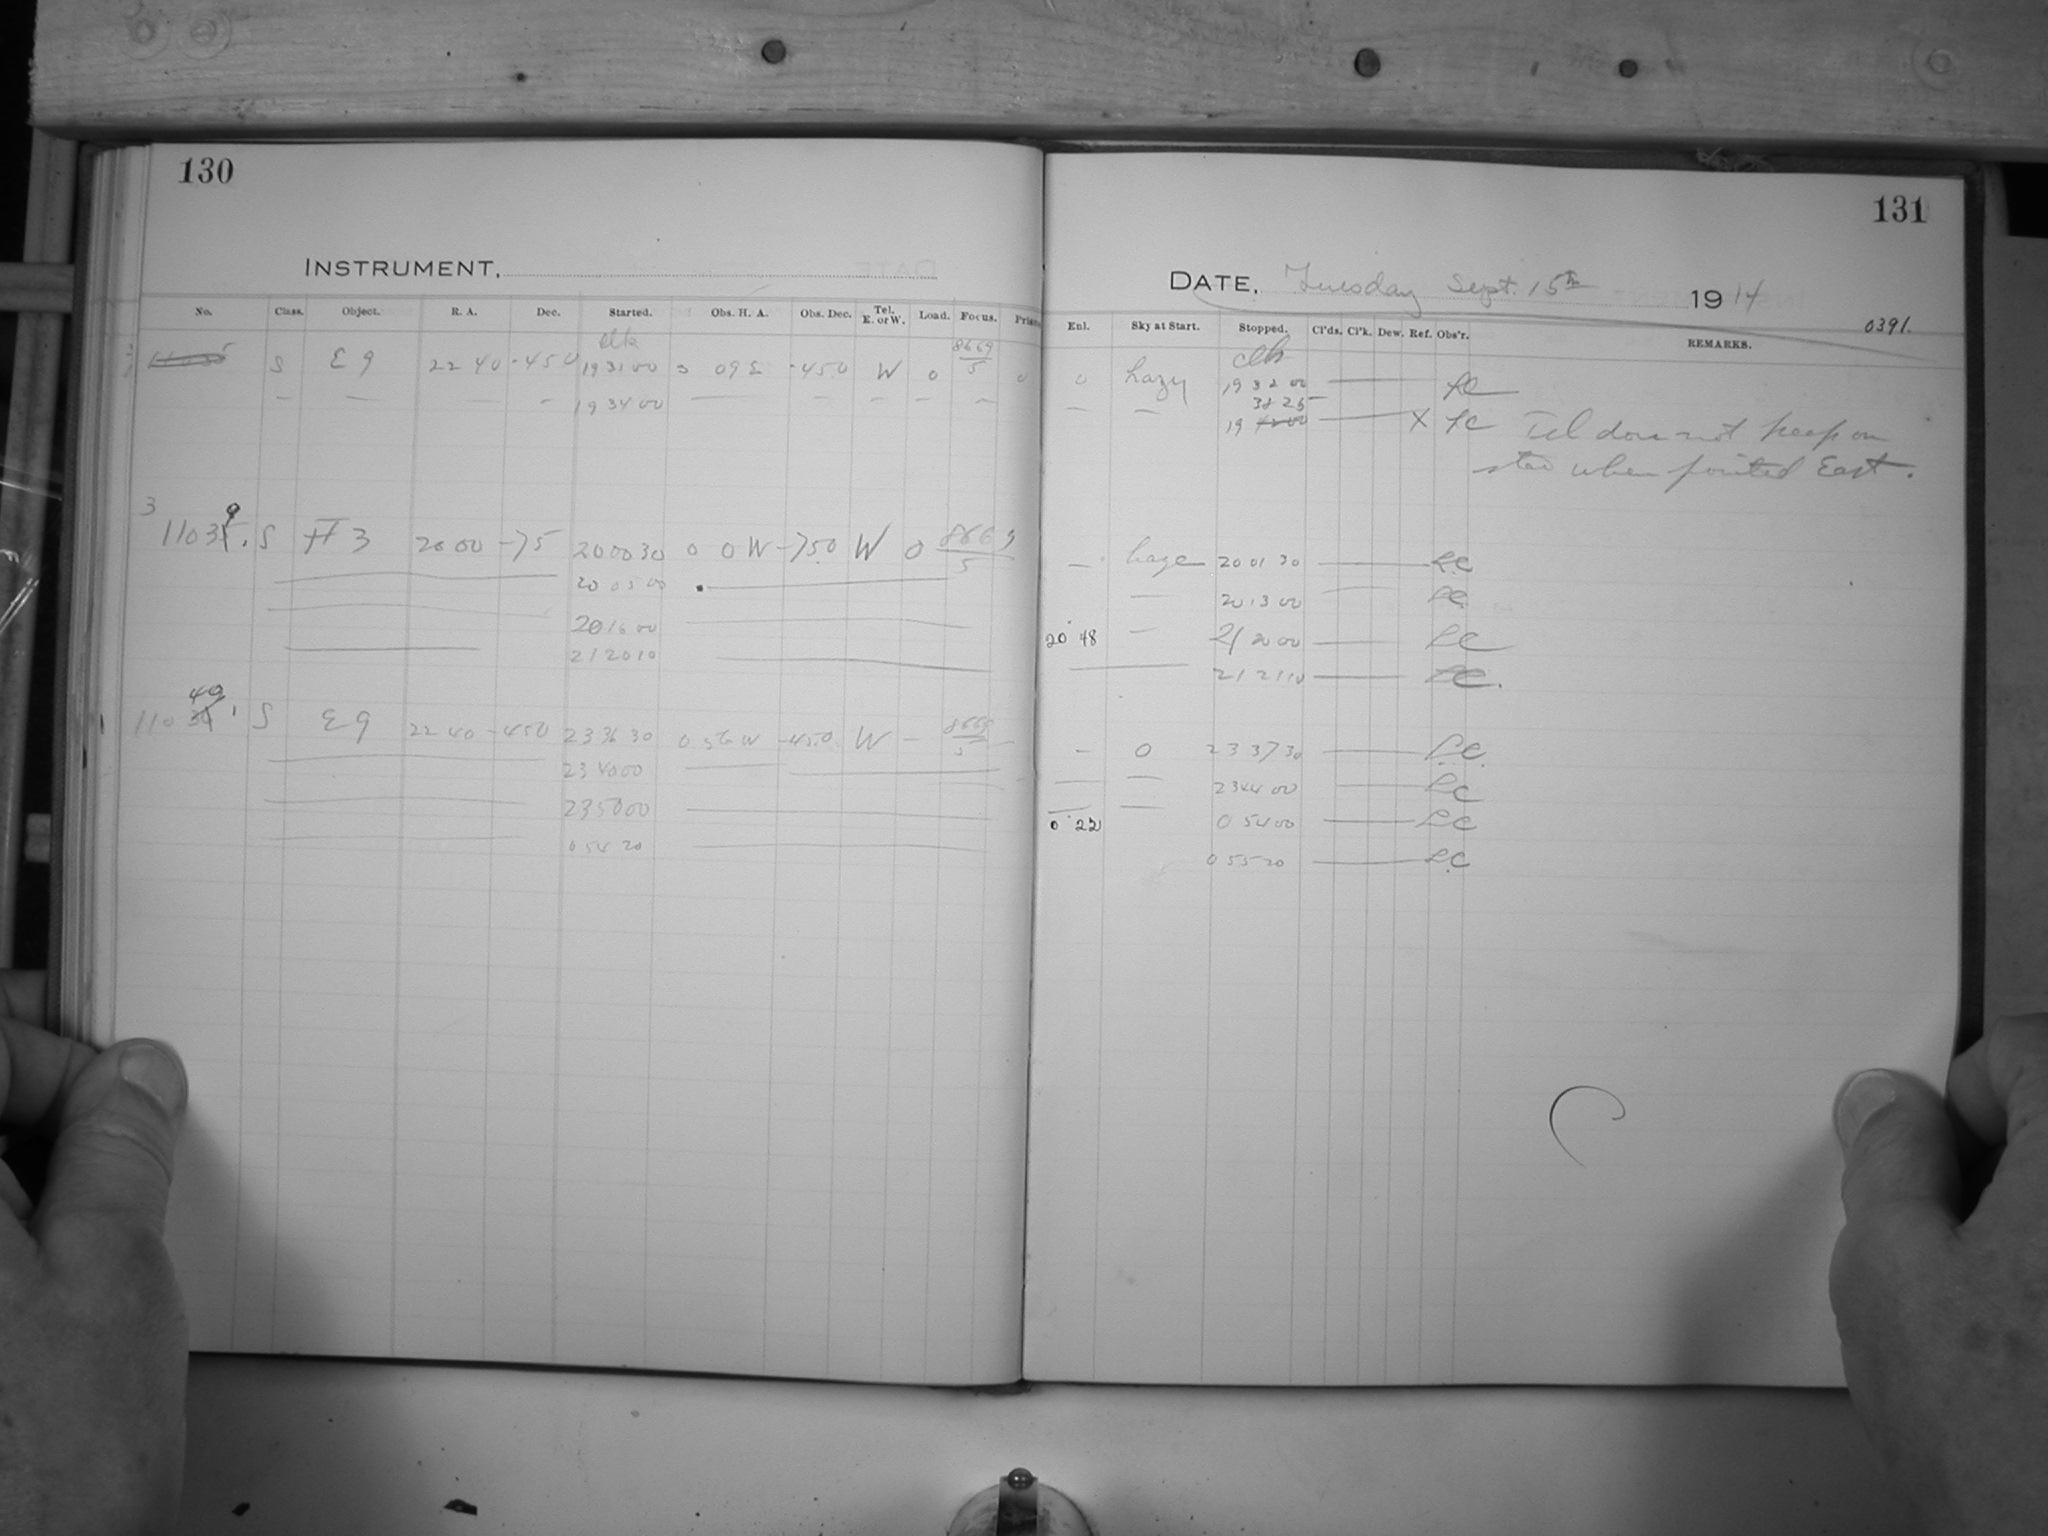 130
INSTRUMENT,
No. Class. Object. R. A. Dec. Started. Obs. H. A. Obs. Dec. Tel. E. or W. Load. Focus.
clk
S E 9 22 40 -45 0 19 31 00 3 09 E -45.0 W 0 8669/5 0
19 34 00
3
9
1103 . S H 3 20 00 -75 20 00 30 0 0 W -75.0 W 0 866 /5
20 05 00
20 16 00
21 20 10
40
110 S E 9 22 40 -45 0 23 36 30 0 56 W -45.0 W - 8669/5
23 40 00
23 50 00
0 54 20
131
DATE, Tuesday Sept. 15th 1914
0391.
Enl. Sky at Start. Stopped. Cl'ds. Cl'k. Dew. Ref. Obs'r. REMARKS.
clk
0 hazy 19 32 00 LC
38 25
19 X LC Tel does not keep on
star when pointed East.
haze 20 01 30 LC
20 13 00 LC
20 48 21 20 00 LC
21 21 10 LC.
- 0 23 37 30 L.C.
23 44 00 LC
0 22 0 54 00 LC
0 55 20 LC